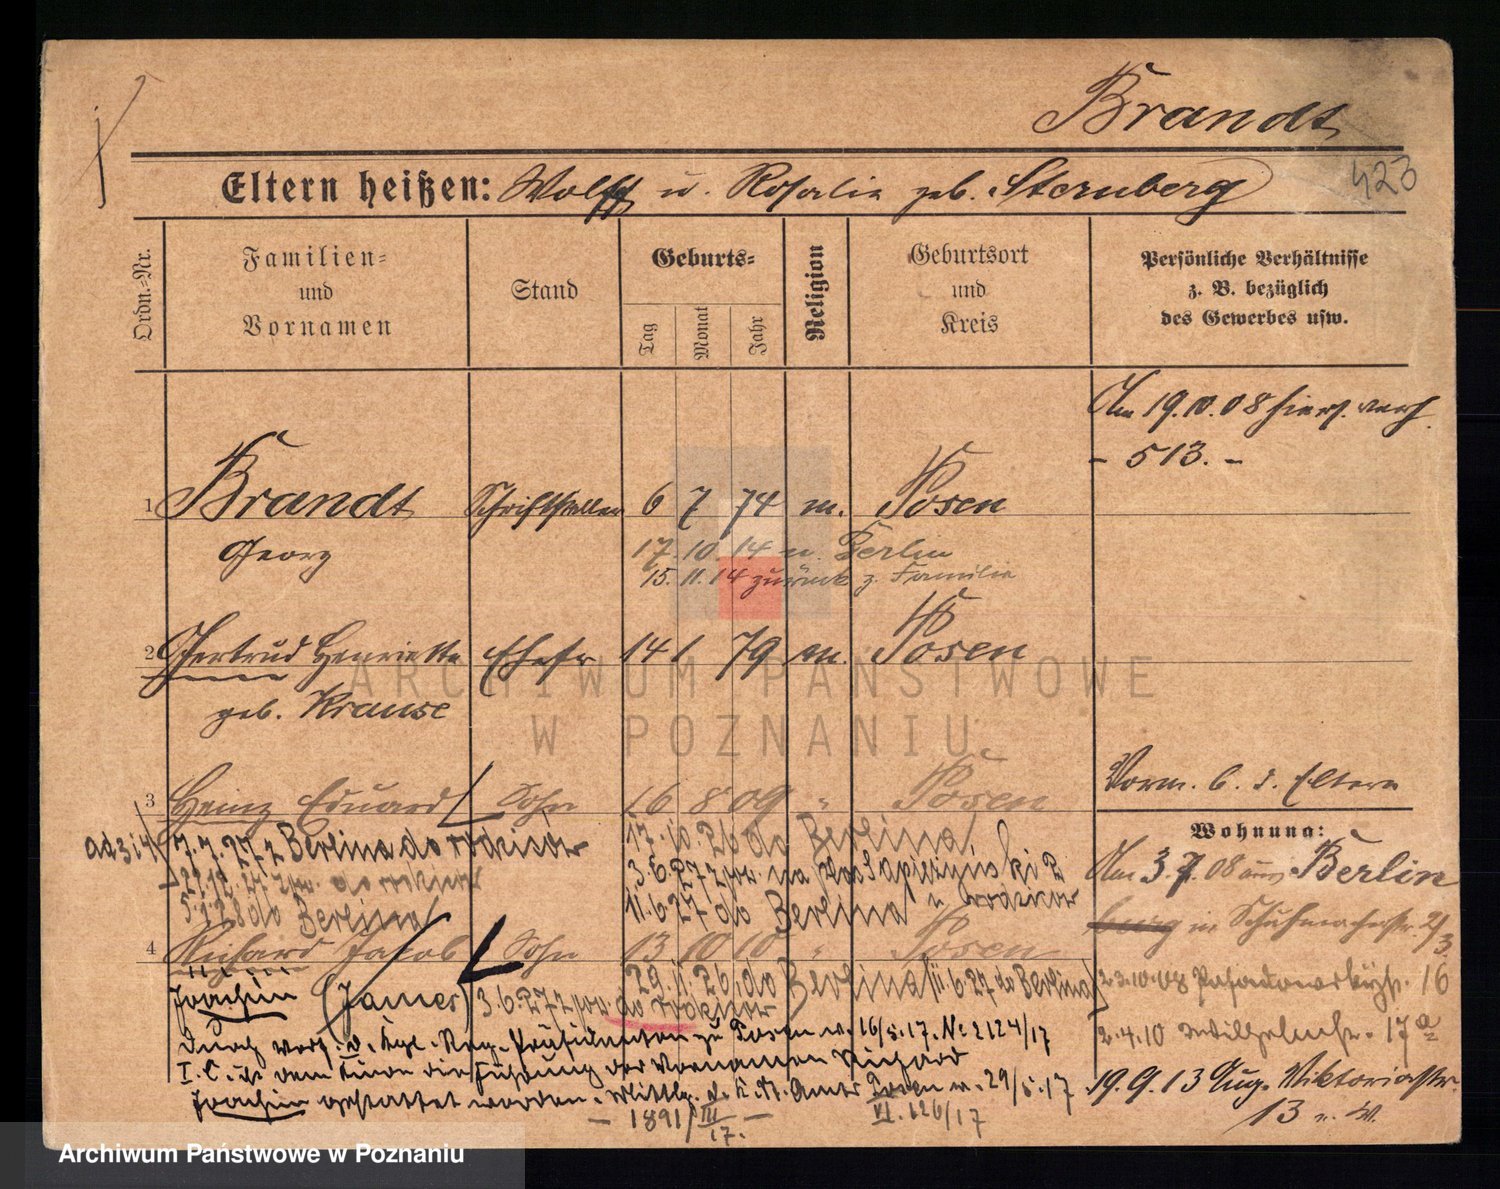 Brandt
423
Eltern heißen: Wolff u. Rosalie geb. Sternberg
Ordn.=Nr.
Familien= und Vornamen
Stand
Geburts=
Tag
Monat
Jahr
Religion
Geburtsort und Kreis
Persönliche Verhältnisse
z. B. bezüglich
des Gewerbes usw.
Am 19.10.08 hier verh.
- 513. -
1 Brandt Schriftsteller 6 7 74 m. Posen
Georg
17. 10. 14 n. Berlin
15. 11. 14 zurück z. Familie
2 Gertrud Henriette Ehefr 14 1 79 m. Posen
geb. Krause
Vorm. b. d. Eltern
3 Heinz Eduard Sohn 16 8 09 " Posen
Wohnung:
ad 3 i 4 7.7.27 z Berlina do rodziców
17.10.26 do Berlina
Am 3.7.08 aus Berlin
do rodziców
3.6.27
11.6.27 do Berlina
do Berlina
in Schuhmacherstr.
4 Richard Jacob Sohn 13 10 10 " Posen
29.11.26 do Berlina 11.6.27 do Berlina
23.10.08 16
Joachim (James) 3.6.27 do rodziców
2.4.10 Wilhelmstr. 17a
Durch Verf. d. Kgl. Reg. Präsidenten zu Posen v. 16/5.17. No 2124/17
I.C. ist dem Kinde die Führung der Vornamen Richard
Joachim gestattet worden. Mittlg. d. Amts Posen v. 29/5.17
19.9.13 Aug. Viktoriastr.
13 u. W.
- 1891/III 17. -
VI. 126/17
ARCHIWUM PAŃSTWOWE
W POZNANIU
Archiwum Państwowe w Poznaniu